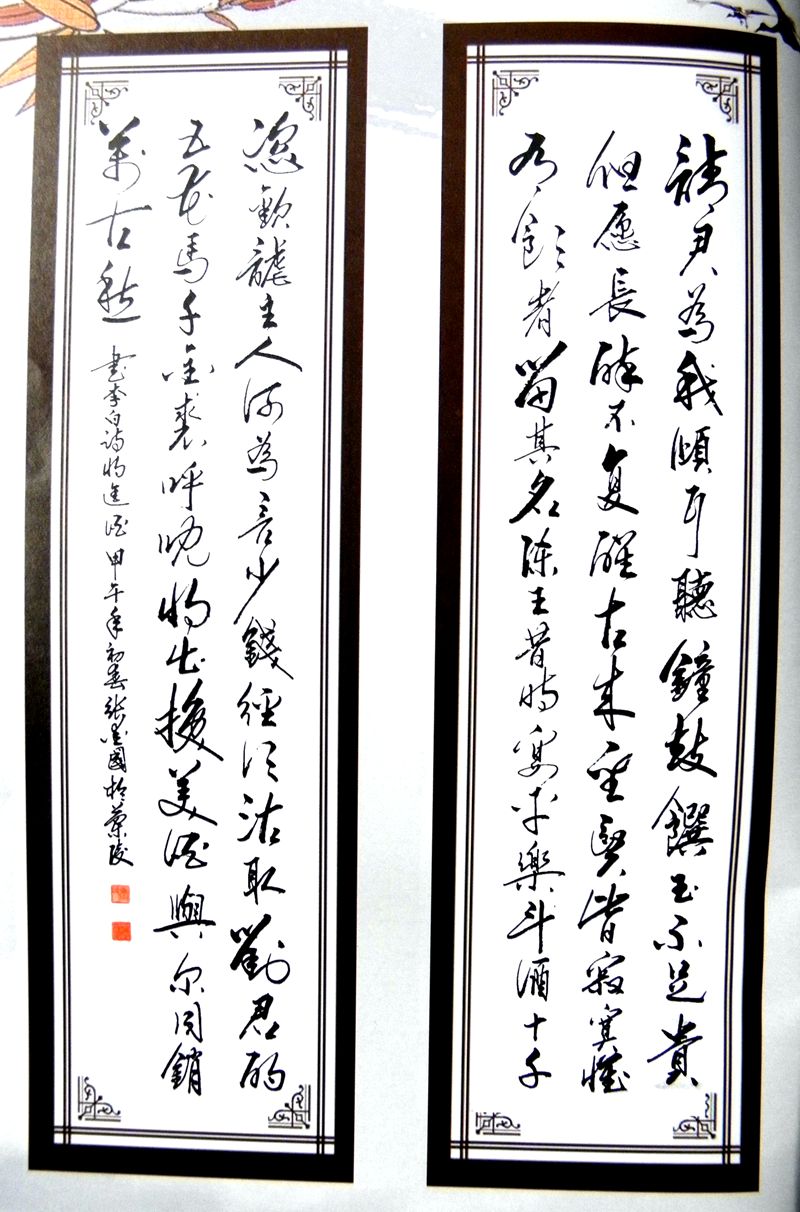 請君為我傾耳聽鐘鼓饌玉不足貴
但愿長醉不复醒古来聖賢皆寂寞惟
有飲者留其名陳王昔時宴平樂斗酒十千
恣歡謔主人何為言少錢經須沽取對君酌
五花馬千金裘呼兒將出換美酒與尔同銷
萬古愁
书李白詩將進酒甲午年初春張金國於蘭陵